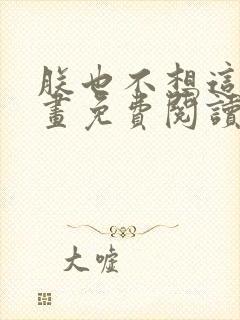 朕也不想這
畫免費閱讀
大噓